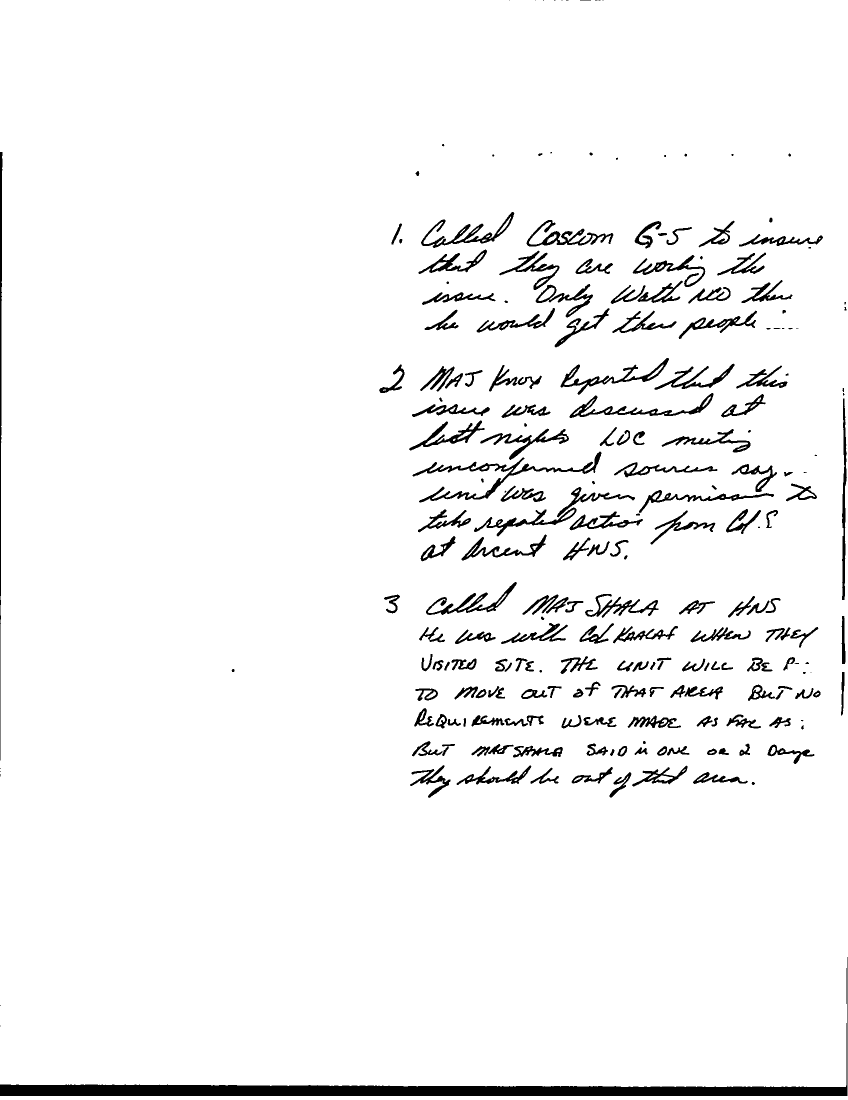 1. Called Coscom G-5 to insure
that they are working the
issue. Only Watch NCO there
he would get there people
2 MAJ Knox Reported that this
issue was discussed at
last nights LOC meeting
unconfermed sources say
unit was given permission to
take repated action from Col. S
at Arcent HNS.
3 Called MAJ SHALA AT HNS
He was with Col KHALAF WHEN THEY
VISITED SITE. THE UNIT WILL BE
TO MOVE OUT OF THAT AREA BUT NO
REQUIREMENTS WERE MADE AS FAR AS
BUT MAJ SHALA SAID in ONE or 2 Days
they should be out of that area.